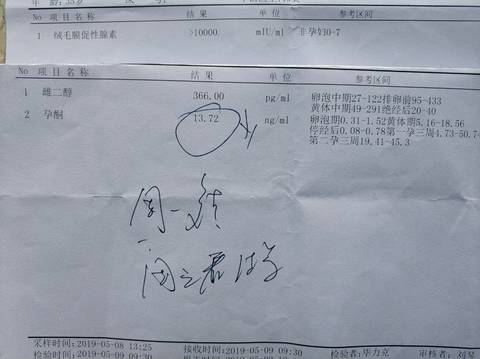 年 龄:35岁
NO 项 目 名 称 结 果 单 位 参 考 区 间
1 绒毛膜促性腺素 >10000. mIU/ml 非孕妇0-7
NO 项 目 名 称 结 果 单 位 参 考 区 间
1 雌二醇 366.00 pg/ml 卵泡中期27-122排卵前95-433
黄体中期49-291绝经后20-40
2 孕酮 13.72 ng/ml 卵泡期0.31-1.52黄体期5.16-18.56
停经后0.08-0.78第一孕三周4.73-50.74
第二孕三周19.41-45.3
周一
周三
采样时间:2019-05-08 13:25 接收时间:2019-05-09 09:30 检验者:毕力克
检验时间:2019-05-09 09:30